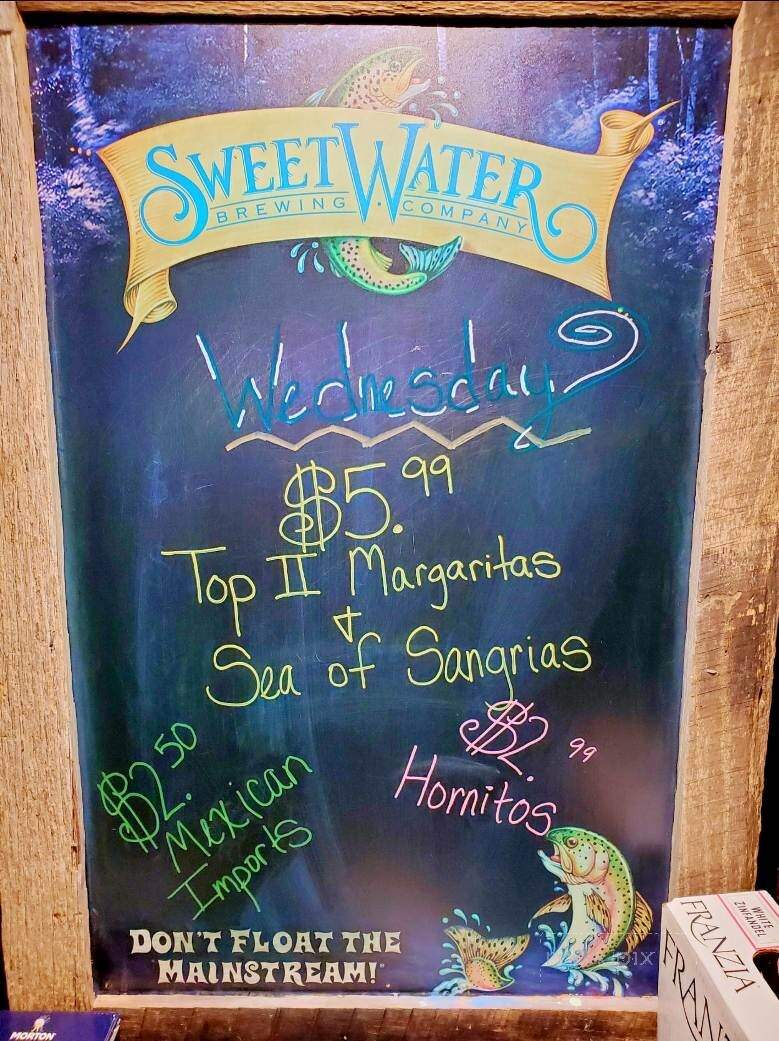 SWEETWATER
BREWING COMPANY
Wednesday
$5.99
Top II Margaritas
&
Sea of Sangrias
$2.50
Mexican
Imports
$2.99
Hornitos
DON'T FLOAT THE
MAINSTREAM!
WHITE
ZINFANDEL
FRANZIA
FRANZ
MORTON
pix